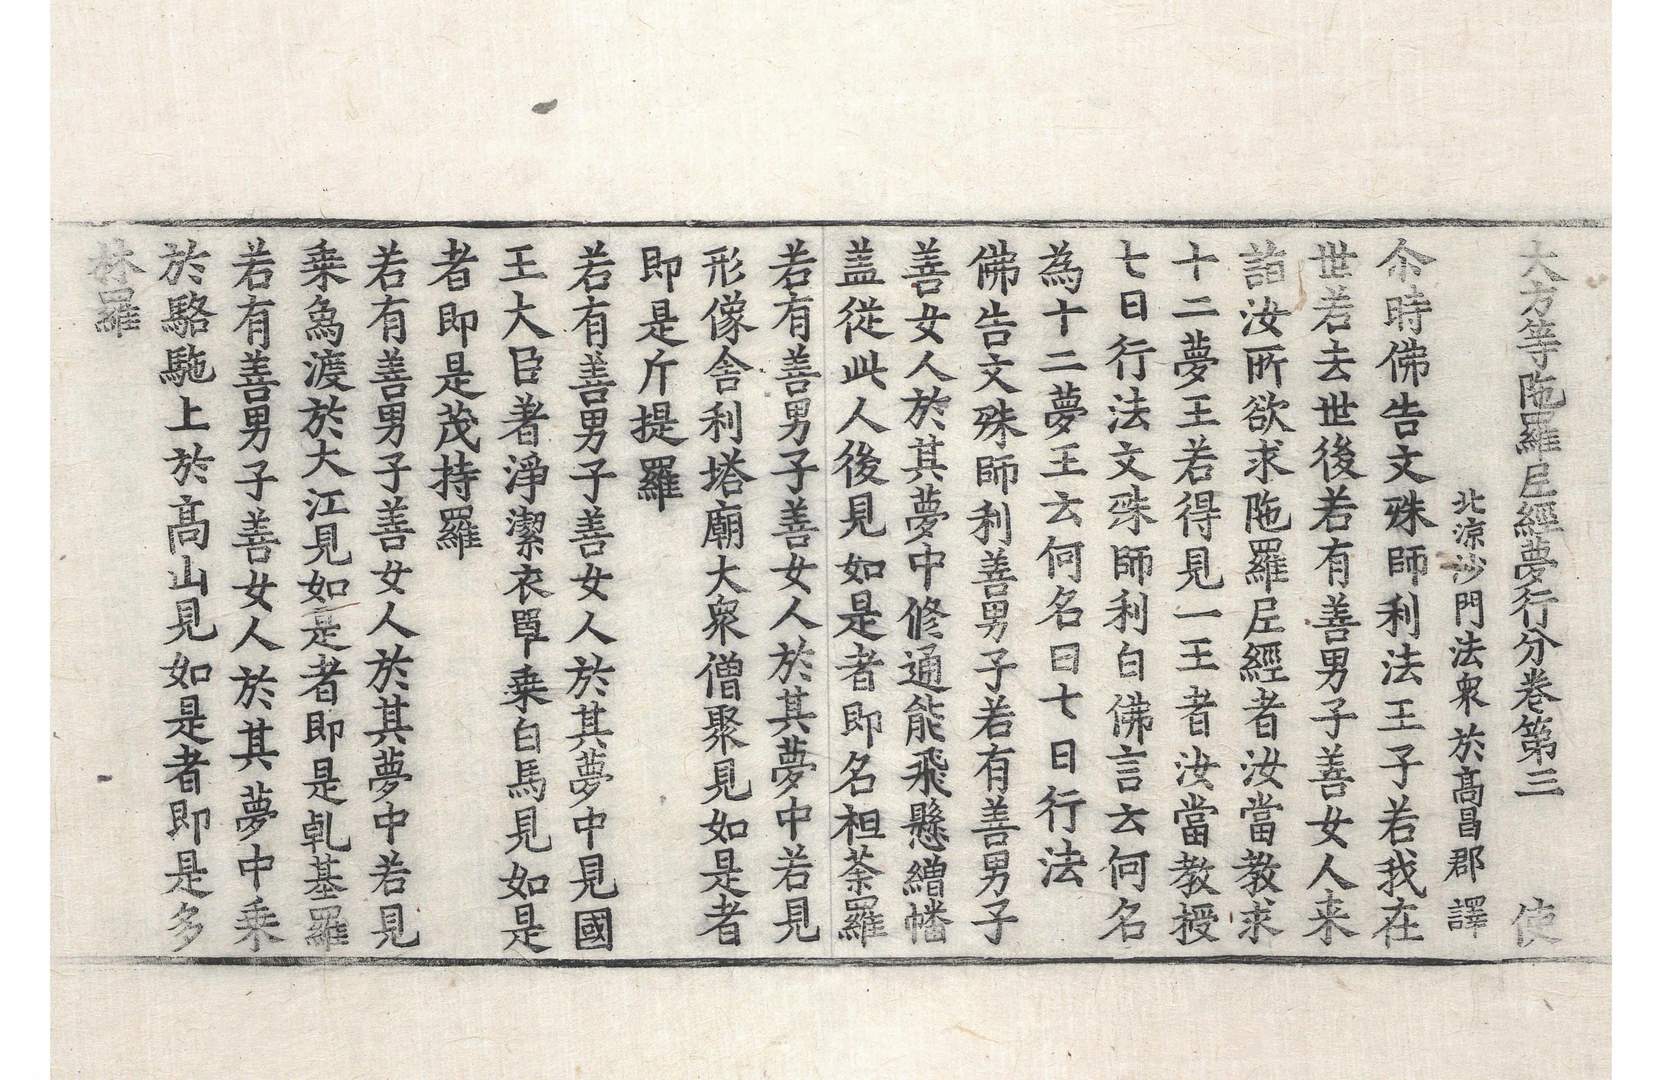 大方等陁羅尼經夢行分卷第三　使
北涼沙門法衆於高昌郡譯
尒時佛告文殊師利法王子若我在
世若去世後若有善男子善女人来
詣汝所欲求陁羅尼經者汝當教求
十二夢王若得見一王者汝當教授
七日行法文殊師利白佛言云何名
為十二夢王云何名曰七日行法
佛告文殊師利善男子若有善男子
善女人於其夢中修通能飛懸繒幡
盖從此人後見如是者即名袒荼羅
若有善男子善女人於其夢中若見
形像舍利塔廟大衆僧聚見如是者
即是斤提羅
若有善男子善女人於其夢中見國
王大臣著淨潔衣單乗白馬見如是
者即是茂持羅
若有善男子善女人於其夢中若見
乗象渡於大江見如是者即是乹基羅
若有善男子善女人於其夢中乗
於駱駞上於髙山見如是者即是多
林羅